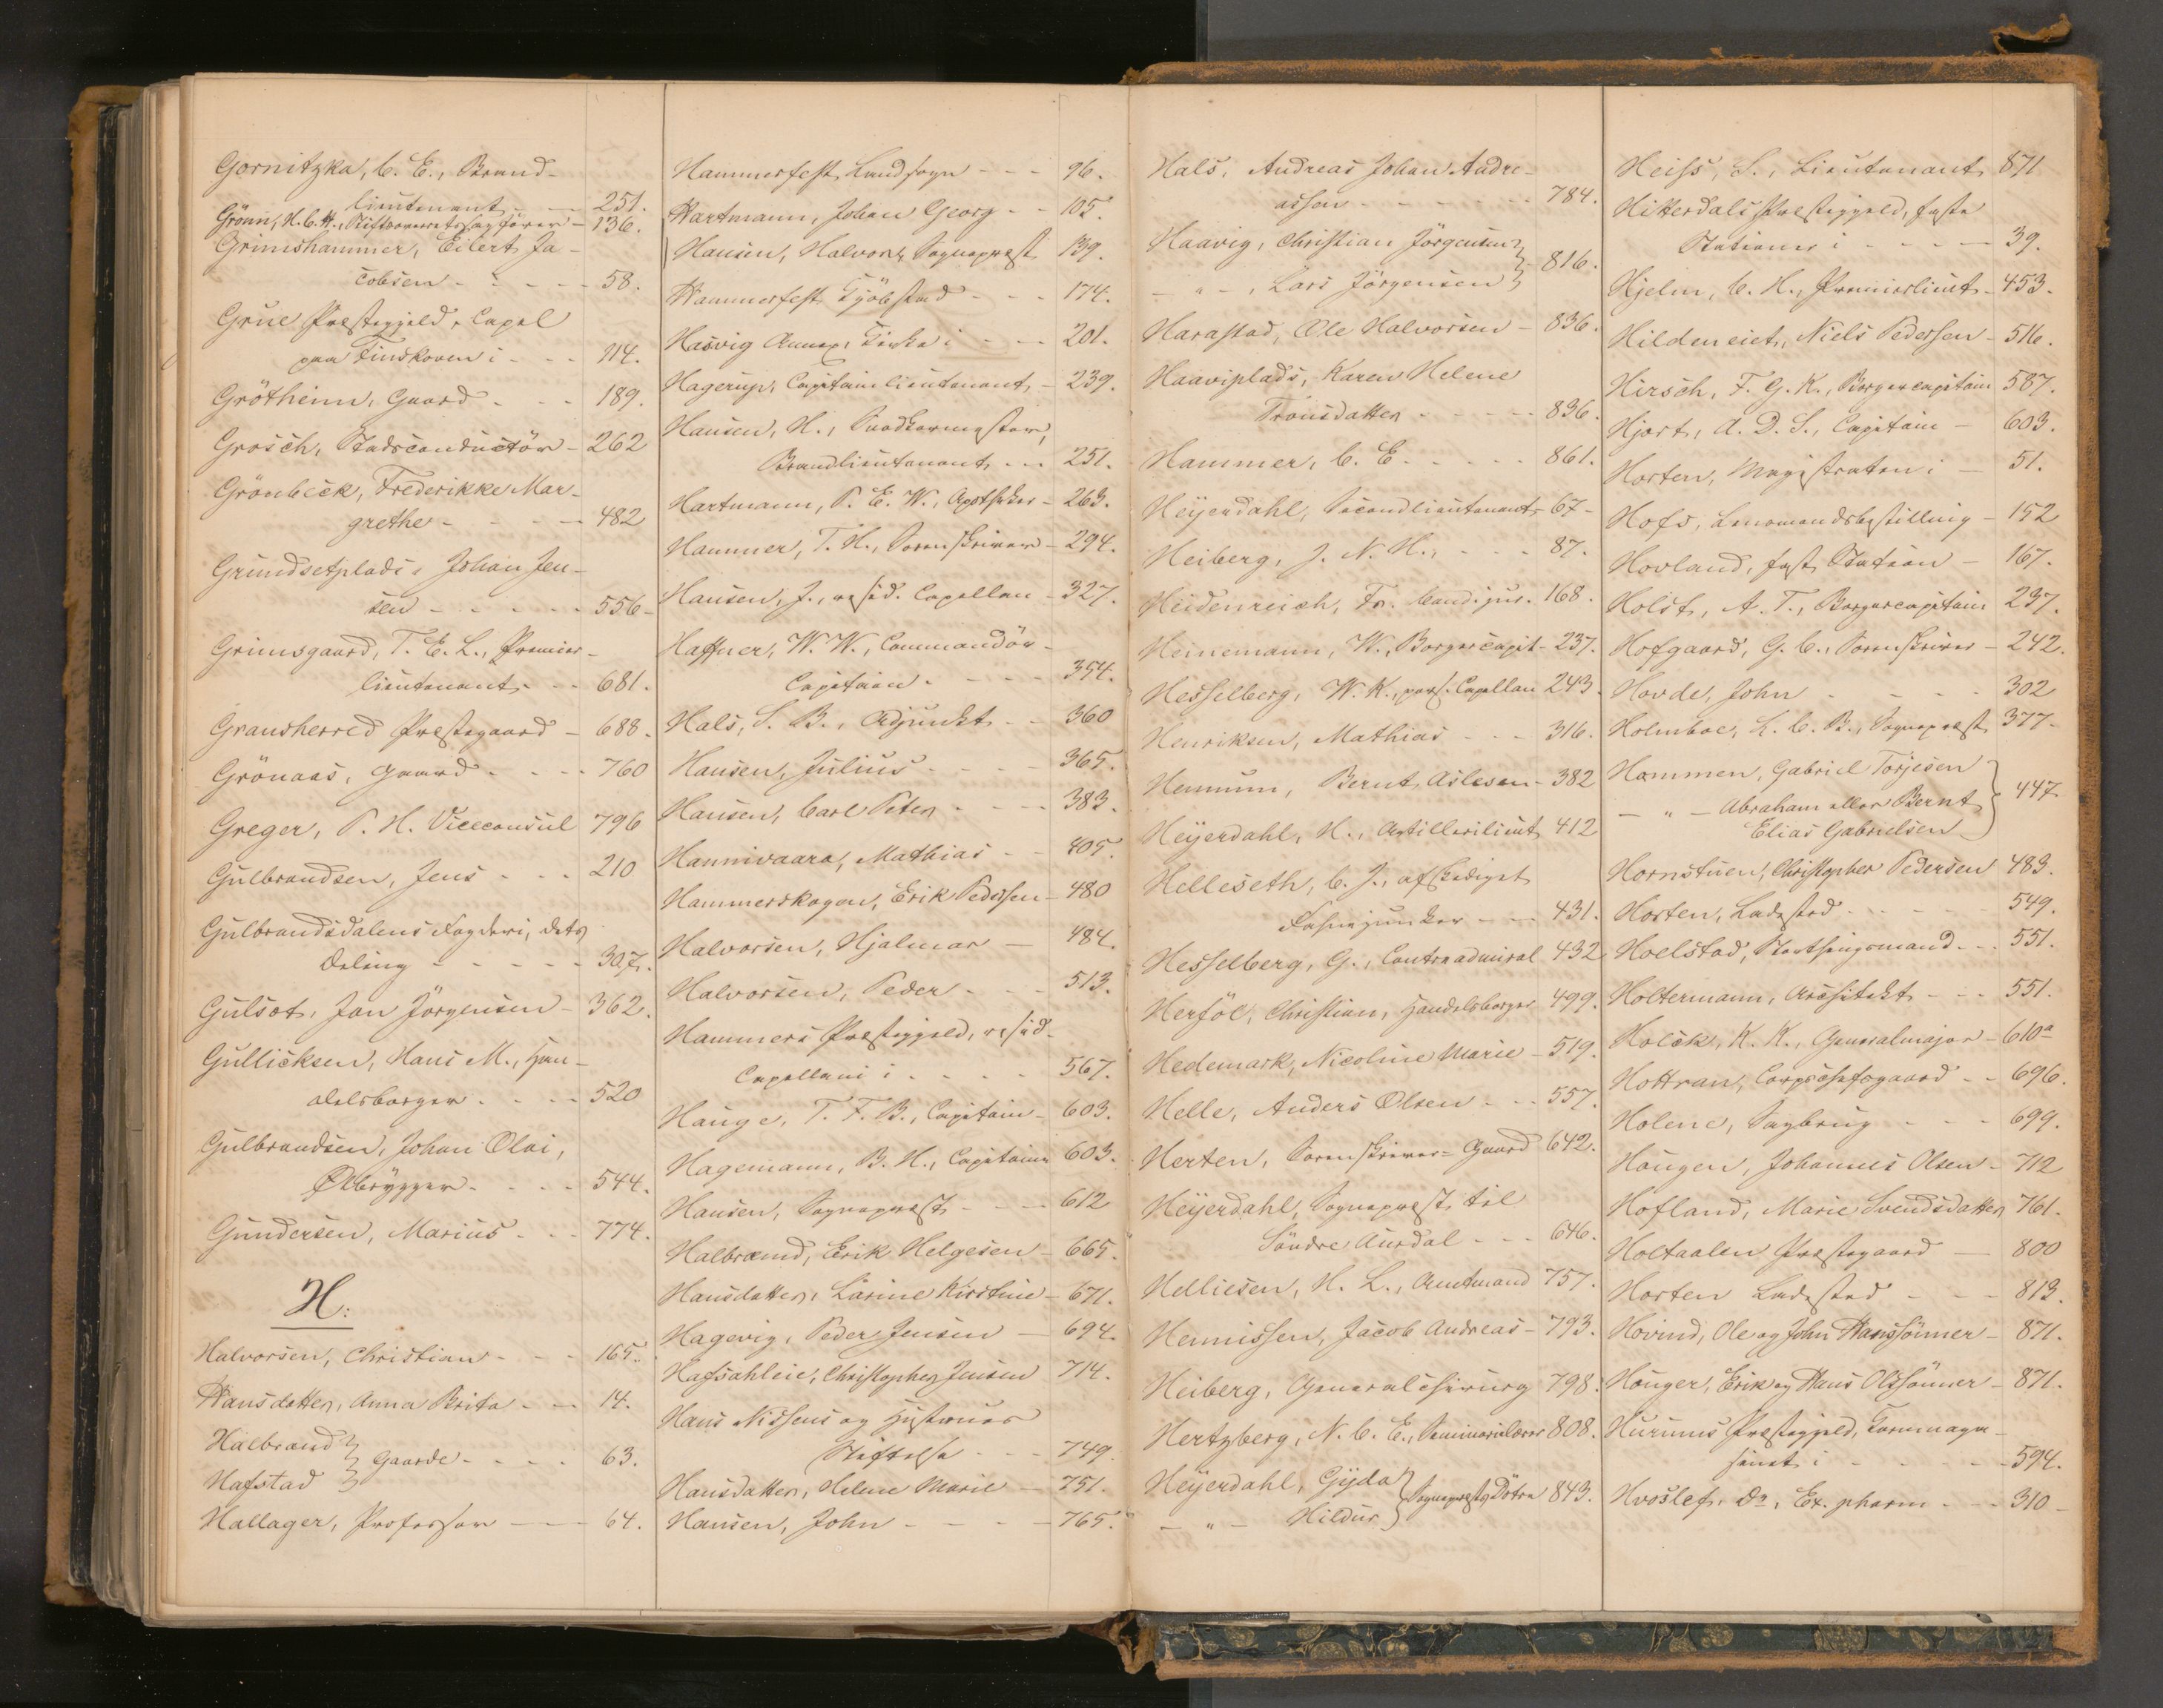 Gornitzka, C. E., Brand-
lieutenant - - 251.
Grönn, H. C. H., Stiftsoverretssagfører - 136.
Grimshammer, Eilert Ja-
cobsen - - - - 58.
Grue Præstegjeld, Capel
paa Findskoven i - - - 114.
Grøtheim, Gaard - - - 189.
Grosch, Stadsconductör - 262
Grönbeck, Frederikke Mar-
grethe - - - - 482
Grundsetplads, Johan Jen-
sen - - - - - 556
Grimsgaard, T. E. L., Premier-
lieutenant - - 681.
Gransherred Præstegaard - 688.
Grönaas, Gaard - - - - 760
Greger, P. H. Viceconsul 796
Gulbrandsen, Jens - - - 210
Gulbrandsdalens Fogderi, dets
Deling - - - - - 307.
Gulsot, Jan Jörgensen - 362.
Gullicksen, Hans M., Han-
delsborger - - - - 520
Gulbrandsen, Johan Olai,
Ølbrygger - - - - 544.
Gundersen, Marius - - - 774.
H:
Halvorsen, Christian - - - 165.
Hansdatter, Anna Brita - - 14.
Halbrand } Gaarde - - - - 63.
Hafstad }
Hallager, Professor - - - 64.
Hammerfest Landsogn - - - 96.
Hartmann, Johan Georg - - 105.
Hansen, Halvor, Sogneprest 139.
Hammerfest Kjöbstad - - - 174.
Hasvig Annex, Kirke i - - - 201.
Hagerup, Capitainlieutenant - 239.
Hansen, H.,
Brandlieutenant - - - 251.
Hartmann, P. E. W., Apotheker - 263.
Hammer, T. H., Sorenskriver - 294.
Hansen, J., resid. Capellan - 327.
Haffner, W. W., Commandör-
Capitain - - - - 354.
Hals, S. B., Adjunkt - - 360
Hansen, Julius - - - - 365.
Hansen, Carl Peter - - - - 383.
Hannivaara, Mathias - - 405.
Hammerskogen, Erik Pedersen - 480
Halvorsen, Hjalmar - 484.
Halvorsen, Peder - - - 513.
Hammers Præstegjeld, resid.
Capellani i - - - - 567.
Hauge, T. F. B., Capitain - 603.
Hagemann, B. H., Capitain 603.
Hansen, Sogneprest - - - 612
Halbrænd, Erik Helgesen - 665.
Hansdatter, Larine Kirstine - 671.
Hagevig, Peder Jensen - 694.
Hafsahleie, Christopher Jensen 714.
Hans Nissens og Hustrues
Stiftelse - - - 749.
Hansdatter, Helene Marie - 751.
Hansen, John - - - - 765.
Hals, Andreas Johan Andre-
assen - - - - - - 784.
Haavig, Christian Jörgensen } 816.
- " - , Lars Jörgensen }
Harastad, Ole Halvorsen - 836.
Haaviplads, Karen Helene
Trönsdatter - - - - - 836.
Hammer, C. E. - - - - 861.
Heyerdahl, Secondlieutenant - 67-
Heiberg, J. N. H., - - - 87.
Heidenreich, Fr. Cand. jur. 168.
Heinemann, W., Borgercapit - 237.
Hesselberg, W. K., pers. Capellan 243.
Henriksen, Mathias - - - 316.
Hennum, Bernt Aslesen - 382
Heyerdahl, H., Artillerilieut 412
Helleseth, C. J., afskediget
Fahnejunker - - - 431.
Hesselberg, G., Contreadmiral 432
Herföl, Christian, Handelsborger 499.
Hedemark, Nicoline Marie - 519.
Helle, Anders Olsen - - 557.
Herten, Sorenskriver=Gaard 642.
Heyerdahl, Sogneprest til
Söndre Aurdal - - - 646.
Helliesen, H. L., Amtmand 757.
Hennissen, Jacob Andreas - 793.
Heiberg, Generalchirurg 798.
Hertzberg, N. C. E., Seminarielærer 808.
Heyerdahl, Gyda } Sogneprests Döttre 843.
- " - Hildur }
Heiss, S., Lieutenant 871
Hitterdals Præstegjeld, faste
Stationer i - - - - 39.
Hjelm, C. H., Premierlieut - 453.
Hildeneiet, Niels Pedersen - 516.
Hirsch, F. G. K., Borgercapitain 587.
Hjort, A. D. S., Capitain - 603.
Horten, Magistraten i - 51.
Hofs, Lensmandsbestilling - 152
Hovland, fast Station - 167.
Holst, A. T., Borgercapitain 237.
Hofgaard, G. C., Sorenskriver - 242.
Hovde, John - - - - 302
Holmboe, L. C. B., Sogneprest 377-
Hommen, Gabriel Torjesen } 447
- " - Abraham eller Bernt
Elias Gabrielsen }
Hornstuen, Christopher Pedersen 483.
Horten, Ladested - - - - 549.
Hoelstad, Storthingsmand - - 551.
Holtermann, Architekt - - - 551.
Holck, K. K., Generalmajor - 610a
Hottran, Corpschefsgaard - - 696.
Holene, Sagbrug - - - 699.
Hougen, Johannes Olsen - 712
Hofland, Marie Svendsdatter 761.
Holtaalen Præstegaard - 800
Horten Ladested - - - 813.
Hovind, Ole og John Hanssönner - 871.
Houger, Erik og Hans Olssönner - 871.
Hurums Præstegjeld, Kornmaga-
sinet i - - - - - 594.
Hvoslef, Dr., Ex. pharm. - - - 310-